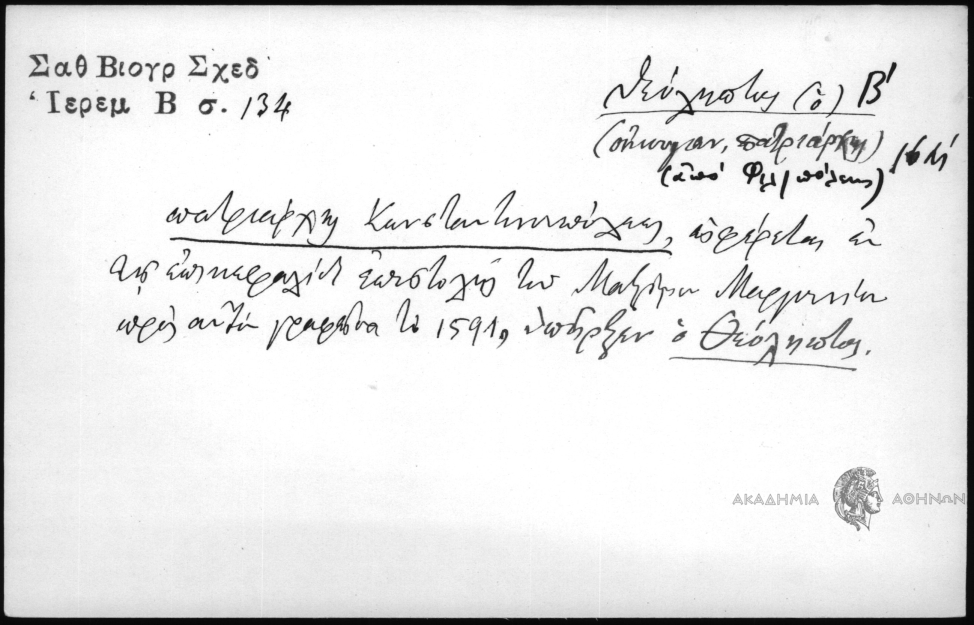 Σαθ Βιογρ Σχεδ
Ἱερεμ Β σ. 134
Θεόληπτος (ὁ) Β΄
(οἰκουμεν. πατριάρχης)
(ἀπό Φιλ/πόλεως)
πατριάρχης Κωνσταντινουπόλεως, ἀναφέρεται ἐν
τῇ ἐπικεφαλίδι ἐπιστολῆς τοῦ Μαξίμου Μαργουνίου
πρὸς αὐτὸν γραφεῖσα τὸ 1591, ὑπῆρξεν ὁ Θεόληπτος.
ΑΚΑΔΗΜΙΑ ΑΘΗΝΩΝ